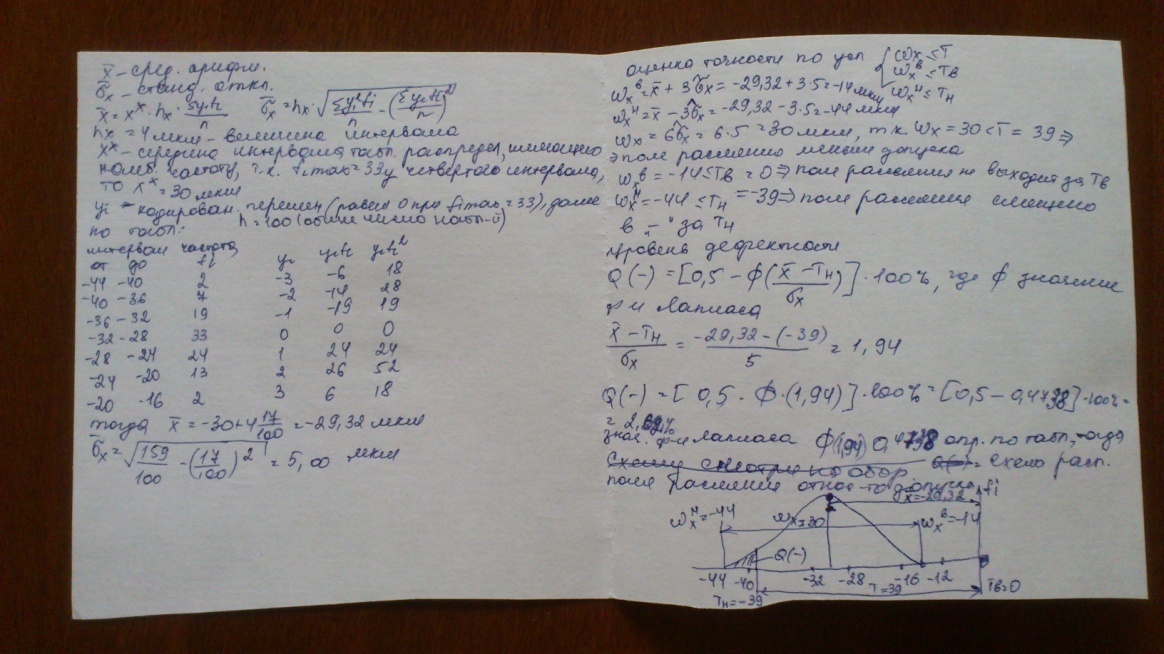 x̄ – сред. арифм.
σ̄x – станд. откл.
x̄ = xˣ · hx · Σyifi/n    σ̄x = hx · √(Σyi²fi/n – (Σyifi/n)²)
hx = 4 мкм – величина интервала
xˣ – середина интервала табл. распредел, имеющего
наиб. частоту, т.к. fimax = 33 у четвертого интервала,
то xˣ = 30 мкм
yi – кодирован. перемен (равен 0 при fimax = 33), далее
по табл.    n = 100 (общее число набл-й)
интервал частота
от до fi yi yifi yifi²
-44 -40 2 -3 -6 18
-40 -36 7 -2 -14 28
-36 -32 19 -1 -19 19
-32 -28 33 0 0 0
-28 -24 24 1 24 24
-24 -20 13 2 26 52
-20 -16 2 3 6 18
тогда x̄ = -30+4 17/100 = -29,32 мкм
σ̄x = √(159/100 – (17/100)²) = 5,00 мкм
оценка точности по усл { ωx ≤ T
ωxᴮ ≤ Tв
ωxᴴ ≤ Tн
ωxᴮ = x̄ + 3σ̂x = -29,32 + 3·5 = -14 мкм
ωxᴴ = x̄ – 3σ̂x = -29,32 – 3·5 = -44 мкм
ωx = 6σ̂x = 6·5 = 30 мкм, т.к. ωx = 30 < T = 39 ⇒
⇒ поле рассеяния меньше допуска
ωxᴮ = -14 ≤ Tв = 0 ⇒ поле рассеяния не выходит за Tв
ωxᴴ = -44 ≤ Tн = -39 ⇒ поле рассеяния смещено
в –"– за Tн
Уровень дефектности
Q(-) = [0,5 – ф((x̄ – Tн)/σx)] · 100%, где ф значение
ф-и Лапласа
(x̄ – Tн)/σx = (-29,32 – (-39))/5 = 1,94
Q(-) = [0,5 – ф·(1,94)] · 100% = [0,5 – 0,4738] · 100% =
= 2,62%
знач. ф-и Лапласа ф(1,94) 0,4738 опр. по табл, тогда
схема расп.
поля рассеяния относ-но допуска
ωxᴴ = -44 ωx = 30 x̄ = -29,32 fi ωxᴮ = -14
Q(-)
-44 -40 -32 -28 -16 -12
Tн = -39 T = 39 Tв = 0